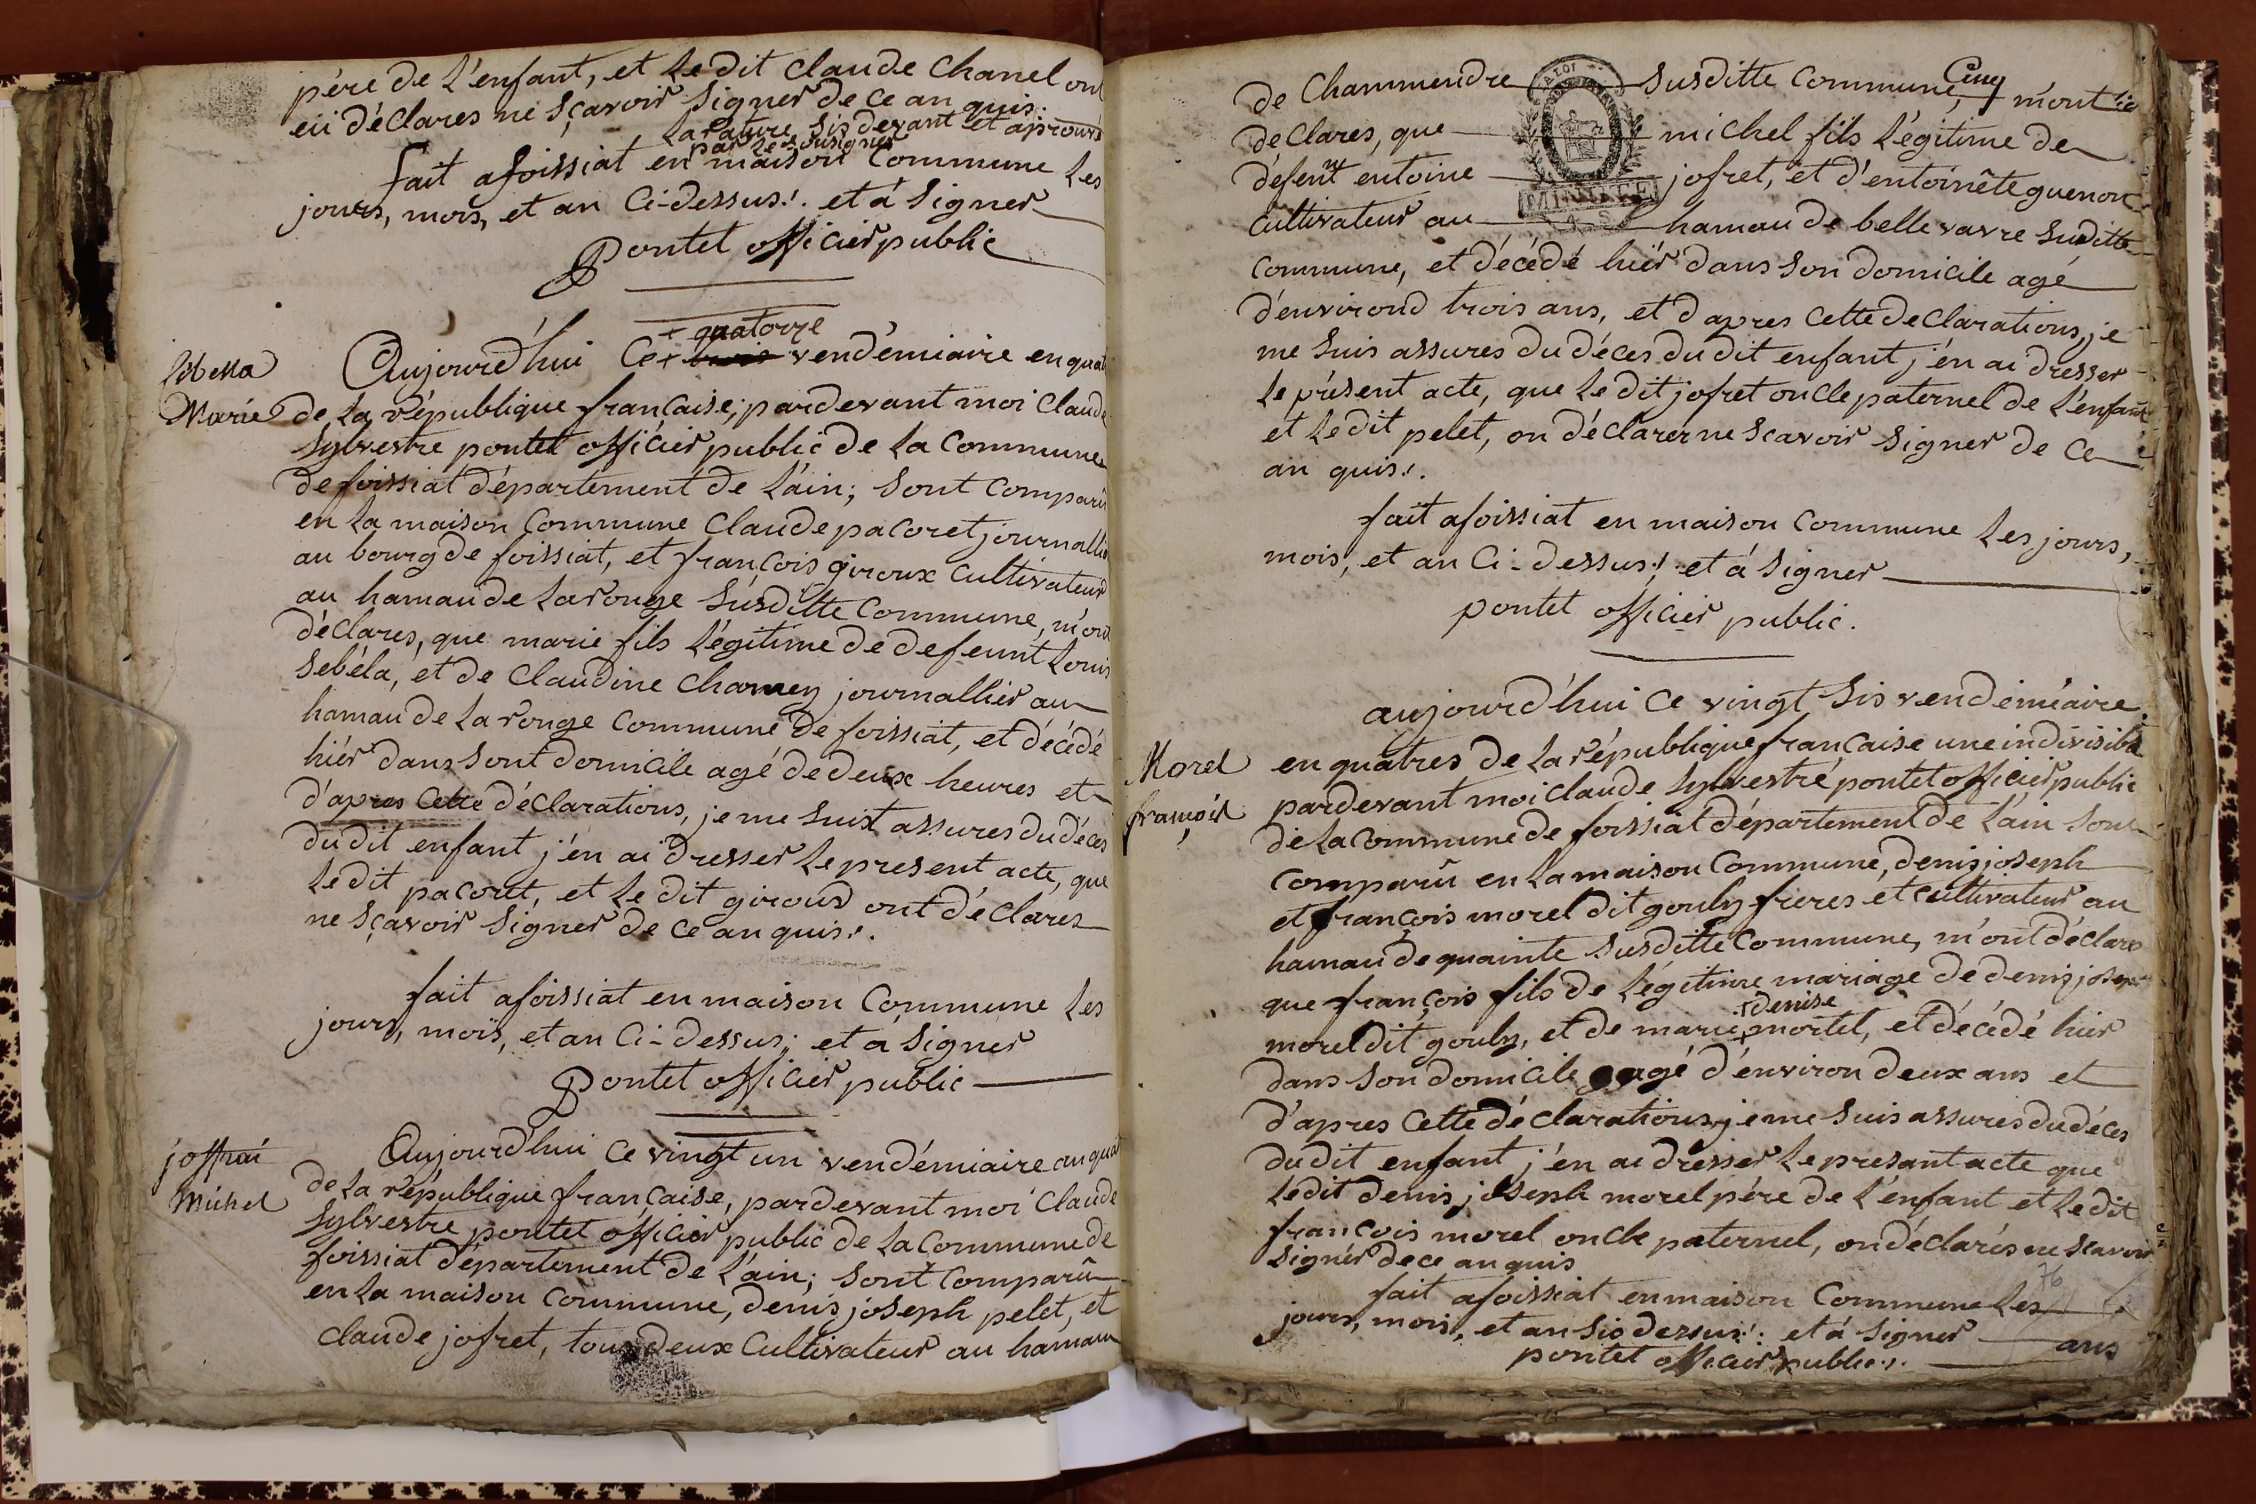 père de L'enfant, et Le dit Claude Chanel ont
eü déclares ne sçavoir signer de ce an quis.
La rature sis devant et aprouvé
par Le soussigner
fait afoissiat en maison Commune Les
jours, mois, et an Ci-dessus!. et à signer
Pontet officier public
+ quatorze
Aujourd'hui Ce + vendémiaire en quat
Marie
de La république française, pardevant moi Claude
Sylvestre pontet officier public de La Commune
de foissiat département de L'ain; sont Comparü
en La maison Commune Claude pacoret journallier
au bourg de foissiat, et françois giroux Cultivateur
au hamau de Larouge susditte Commune, m'ont
déclares, que marie fils Légitime de defeunt Louis
Sebéla, et de Claudine Charney journallier au
hamau de La rouge Commune de foissiat, et décédé
hiér dans sont domicile agé de deux heures et
d'apres Cette déclarations, je me suist assures du déces
du dit enfant j'én ai dresser Le present acte, que
Le dit pacoret, et Le dit giroud ont déclares
ne sçavoir signer de ce an quis!.
fait afoissiat en maison Commune Les
jours, mois, et an Ci-dessus; et à signer
Pontet officier public
joffrai
Michel
Aujourd'hui Ce vingt un vendémiaire an quat
de La république française, pardevant moi Claude
Sylvestre pontet officier public de La Commune de
foissiat département de L'ain; sont Comparü
en La maison Commune, denis joseph pelet, et
Claude jofret, tous deux Cultivateur au hamau
de Chammendre susditte Commune, Cinq m'ont
declares, que michel fils Légitime de
défent entoine jofret, et d'entoinéte guenon
Cultivateur au hamau de belle vavre suditte
Commune, et décédé hiér dans son domicile agé
d'environd trois ans, et d'apres Cette declarations, je
me suis assures du déces du dit enfant j'én ai dresser
Le présent acte, que Le dit jofret oncle paternel de L'enfant
et Le dit pelet, on déclarer ne scavoir signer de Ce
an quis!.
fait afoissiat en maison Commune Les jours,
mois, et an Ci-dessus!, et à signer
pontet officier public.
aujourd'hui Ce vingt sis vendémiaire
Morel
françois
en quatres de La république française une indivisible
pardevant moi Claude Sylvestre pontet officier public
de La Commune de foissiat département de L'ain sont
Comparü en La maison Commune, denis joseph
et françois morel dit gouly freres et Cultivateur au
hamau de quainte susditte Commune, m'ont déclares
que françois fils de Légitime mariage de denis joseph
+ denise
morel dit gouly, et de marie + mortel, et décédé hier
dans son domicile agé d'énviron deux ans et
d'apres Cette déclarations, je me suis assures du déces
du dit enfant j'én ai dresser Le présant acte que
Le dit denis joseph morel pére de L'enfant et Le dit
françois morel oncle paternel, on déclarés ne scavoir
signér de ce an quis
76
fait afoissiat en maison Commune Les
jours, mois, et an sis dessus!. et à signer
ans
pontet officier public!.